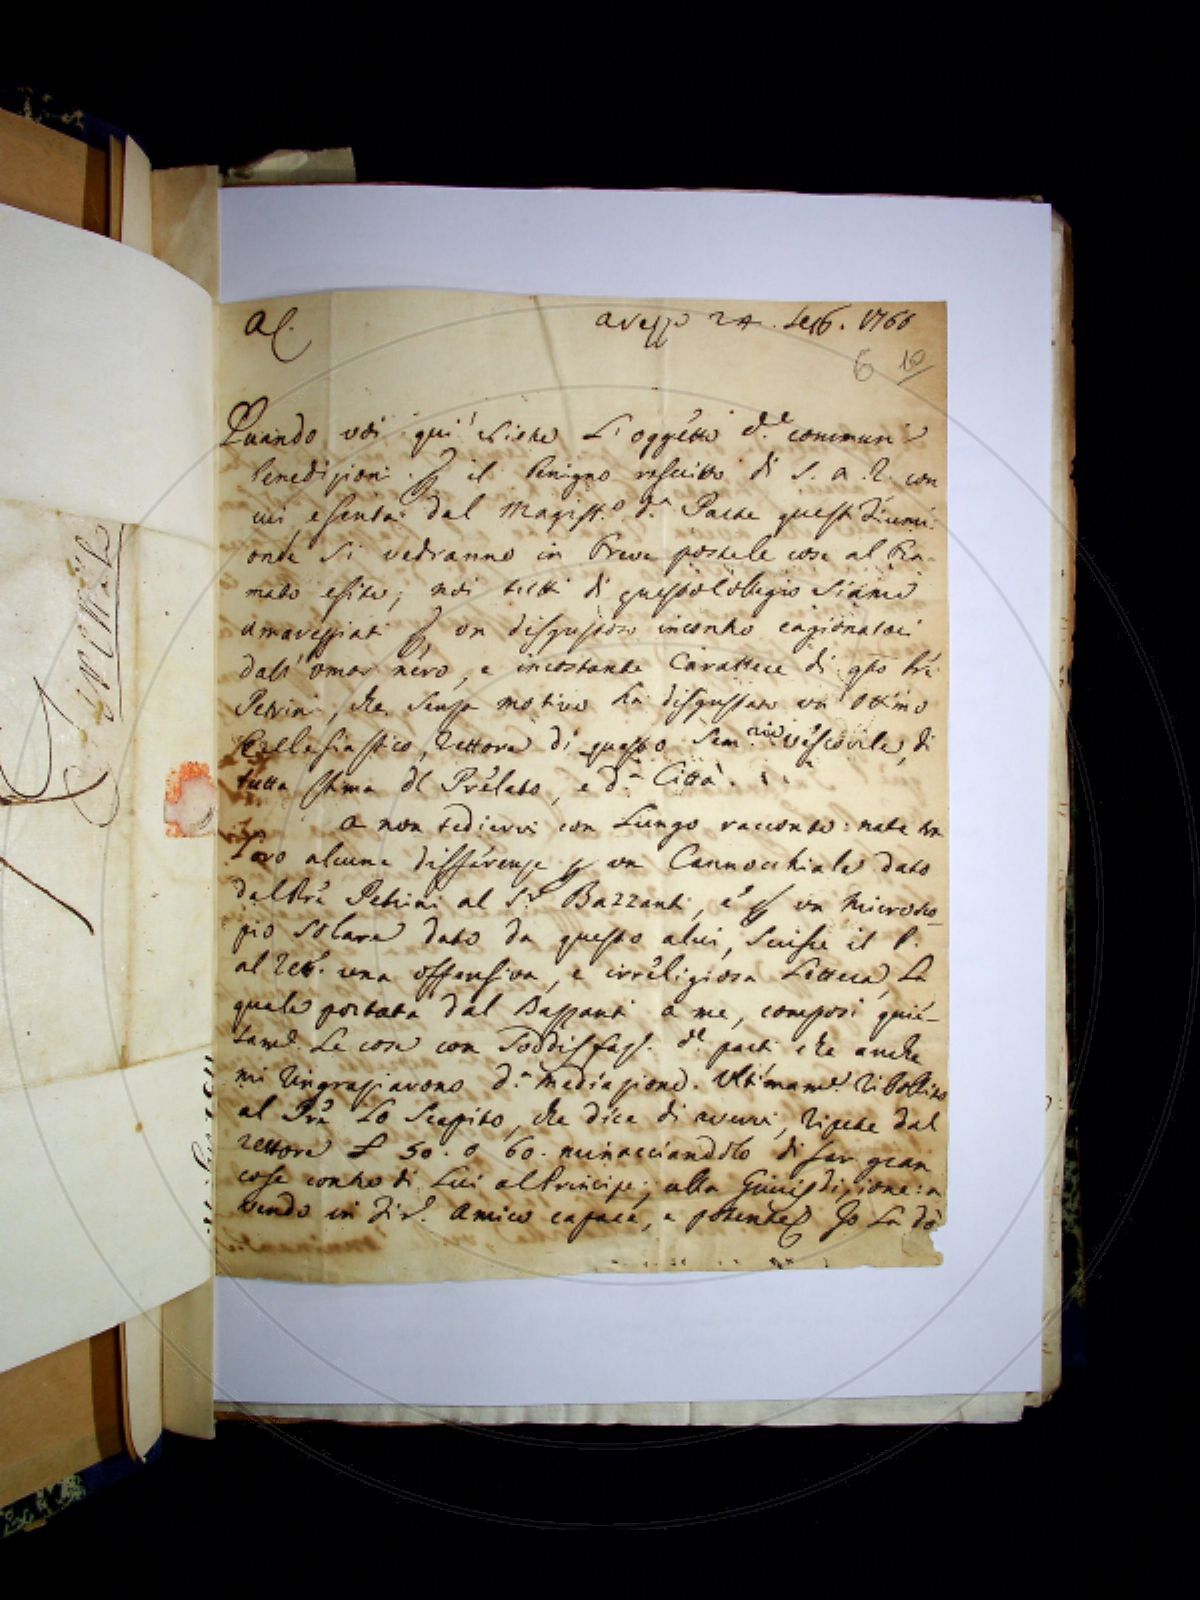 AC.
Arezzo 24. Sett. 1766
6 10
Quando voi quì siete l'oggetto d.e communi
benedizioni p il benigno rescritto di S. A. R. con
cui esenta dal Magist.o d.a Parte questi Fiumi.
onde si vedranno in breve poste le cose al bra-
mato esito; noi tutti di questo Collegio siamo
amareggiati p un disgustoso incontro cagionatoci
dall'omor nero, e incostante Carattere di q̃to Prẽ
Petrini, che senza motivo ha disgustato un ottimo
Ecclesiastico, Rettore di questo Sem.rio Vescovile, di
tutta stima del Prelato, e d.a Città.
A non tediarvi con lungo racconto: nate tra
loro alcune differenze p un Cannocchiale dato
dal Prẽ Petrini al S.r Bazzanti, e p un Microsco-
pio solare dato da questo a lui, scrisse il P.
al Rett.e una offensiva, e irreligiosa Lettera, la
quale portata dal Bazzanti a me, composi quie-
tam.e le cose con soddisfaz.e d.e parti che anche
mi ringraziarono d.a mediazione. Ultimam.e ribollito
al Prẽ lo scapito, che dice di avervi, ripete dal
Rettore £ 50. o 60. minacciandolo di far gran
cose contro di lui al Principe, alla Giurisdizione: a
vendo in Fir.e Amico capace, e potente. Io la dò